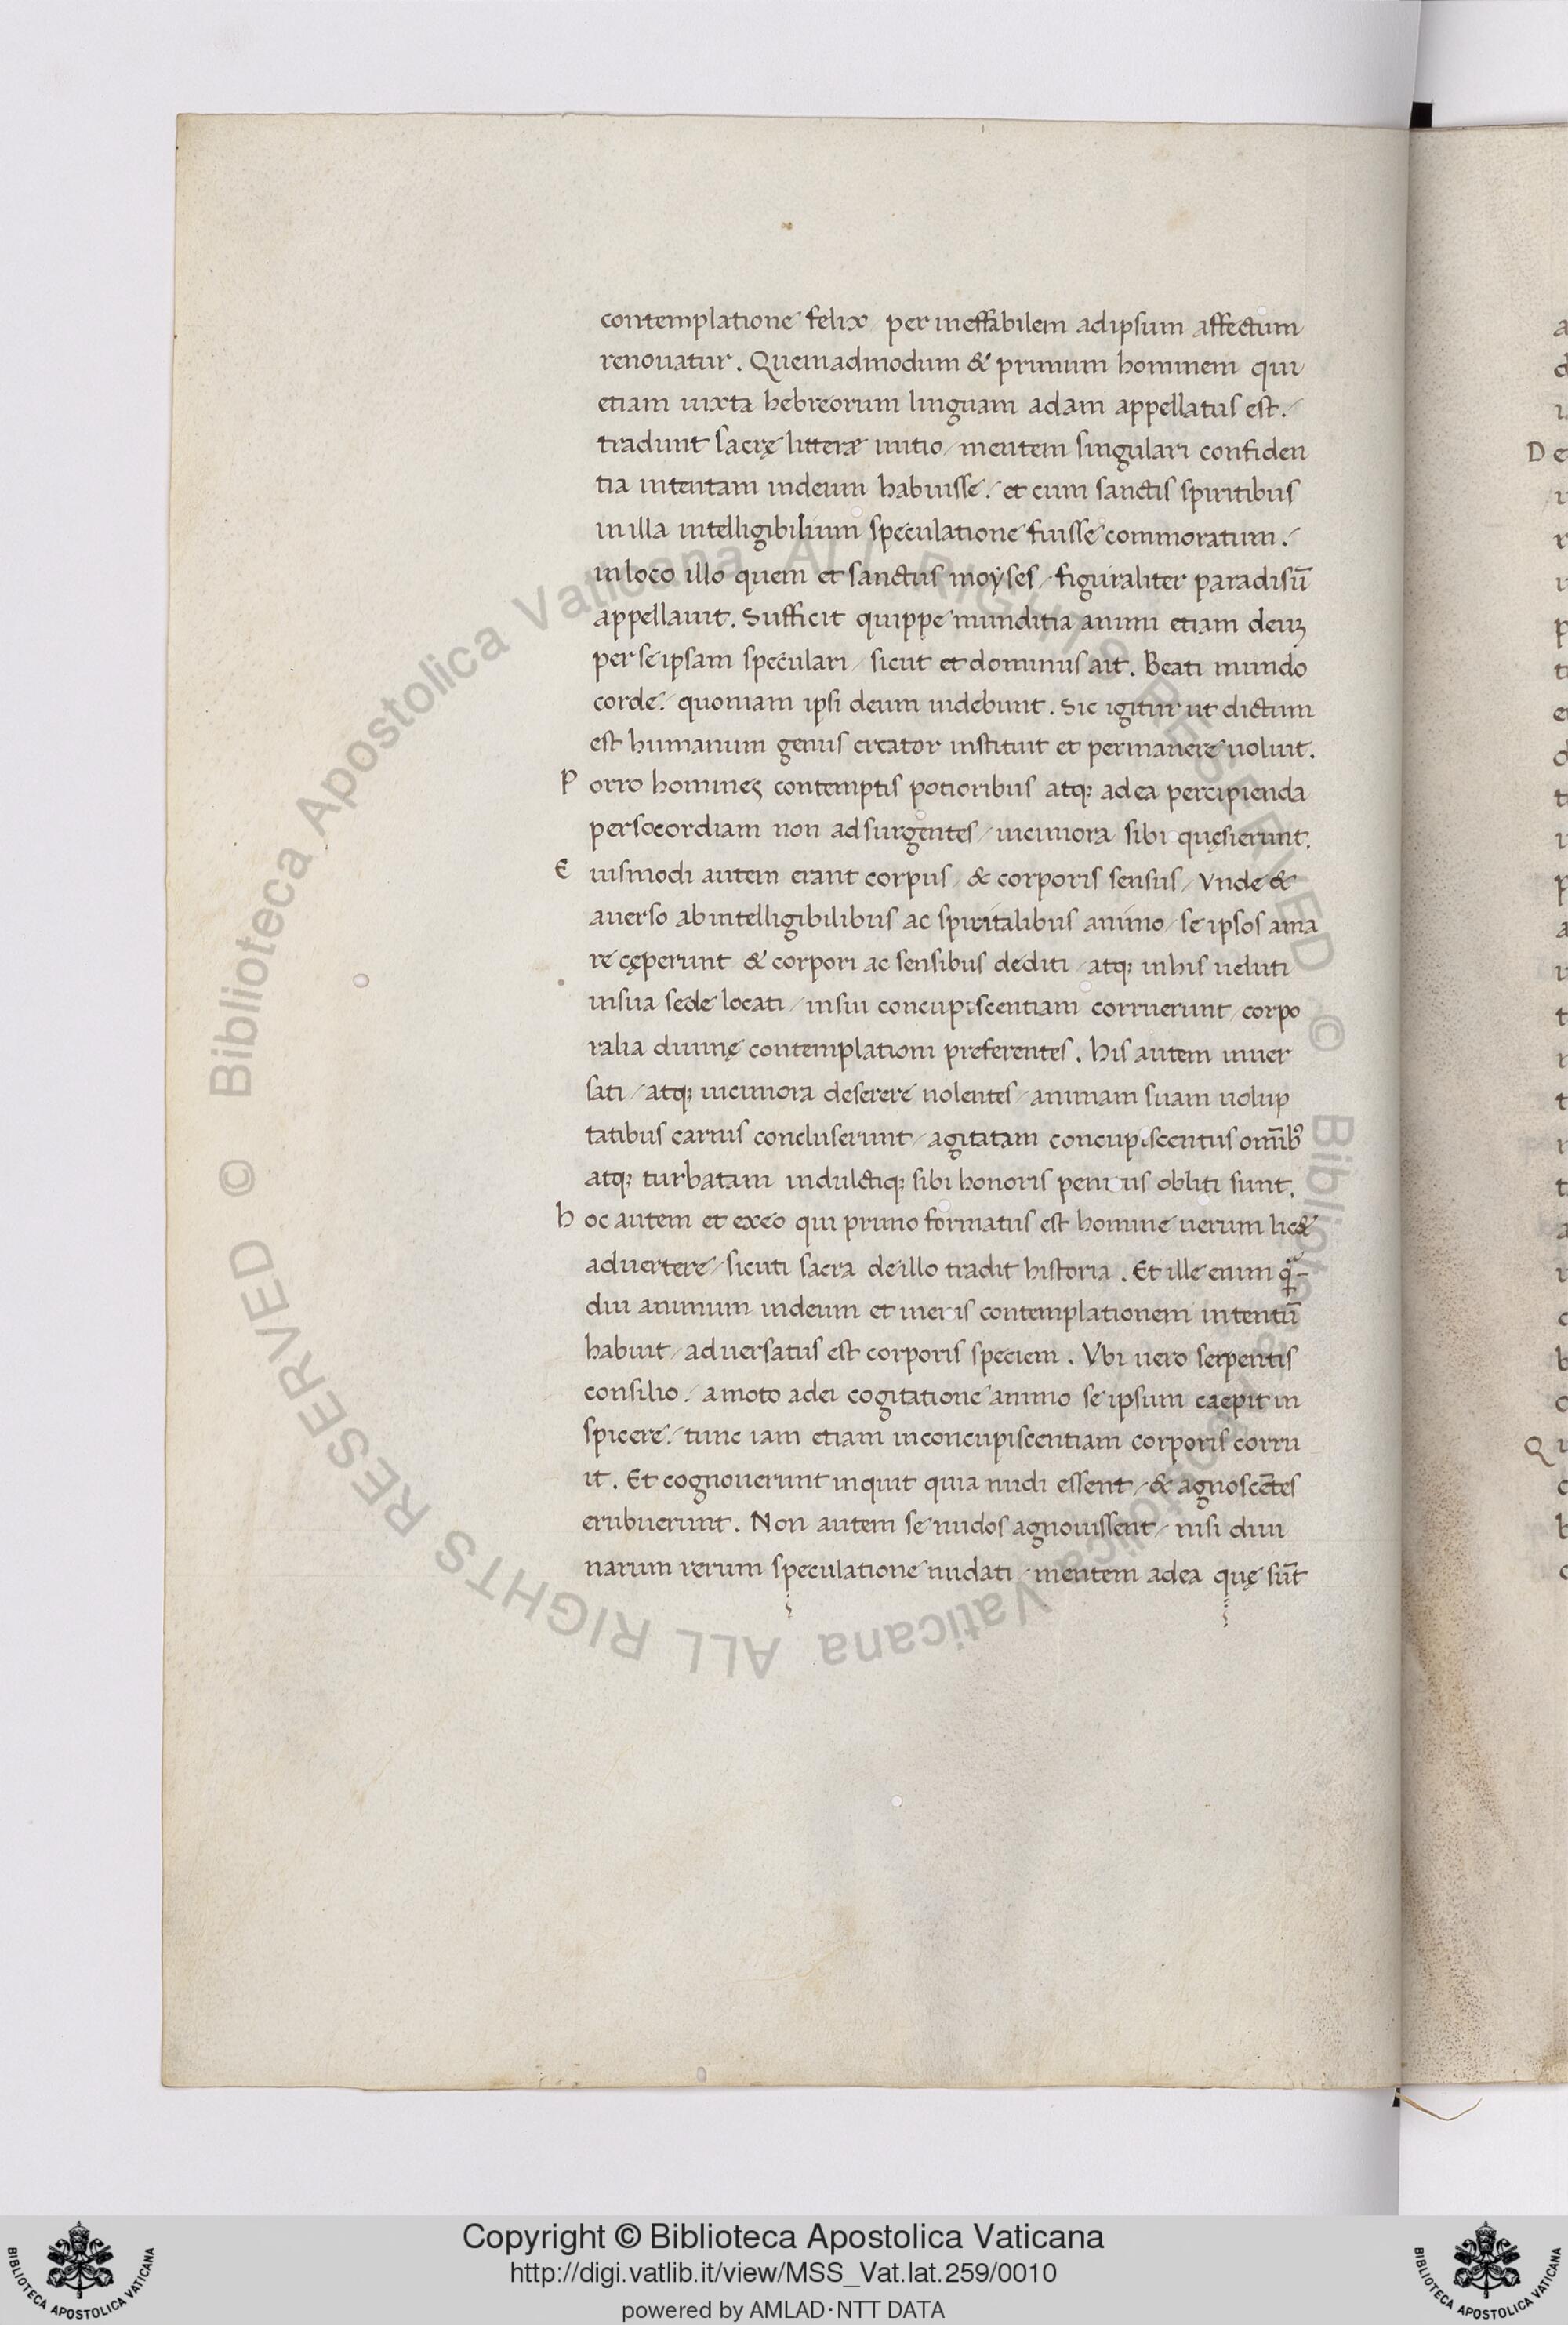 contemplatione felix per ineffabilem adipsum affectum
renouatur. Quemadmodum & primum hominem qui
etiam iuxta hebreorum linguam adam appellatus est./
tradunt sacrę litteræ initio/ mentem singulari confiden
tia intentam indeum habuisse./ et cum sanctis spiritibus
inilla intelligibilium speculatione fuisse commoratum./
inloco illo quem et sanctus moÿses/ figuraliter paradisū
appellauit. Sufficit quippe munditia animi etiam deuꝫ
perseipsam speculari/ sicut et dominus ait. Beati mundo
corde./ quoniam ipsi deum uidebunt. Sic igitur ut dictum
est humanum genus creator instituit et permanere uoluit.
Porro homines contemptis potioribus atqꝫ adea percipienda
persocordiam non adsurgentes/ uicimora sibi quęsierunt.
Eiusmodi autem erant corpus/ & corporis sensus/ Vnde &
auerso abintelligibilibus ac spiritalibus animo/ se ipsos ama
re cęperunt & corpori ac sensibus dediti/ atqꝫ inhis ueluti
insua sede locati/ insui concupiscentiam corruerunt/ corpo
ralia diuinę contemplationi preferentes. his autem inuer
sati/ atqꝫ uicimora deserere nolentes/ animam suam uolup
tatibus carnis concluserunt/ agitatam concupiscentiis om̄ibꝰ
atqꝫ turbatam indulctiqꝫ sibi honoris penitus obliti sunt.
hoc autem et exeo qui primo formatus est homine uerum lic&
aduertere/ sicuti sacra deillo tradit historia. Et ille enim q̄-
diu animum indeum et ineius contemplationem intentū
habuit/ aduersatus est corporis speciem. Vbi uero serpentis
consilio./ amoto adei cogitatione animo se ipsum caepit in
spicere./ tunc iam etiam inconcupiscentiam corporis corru
it. Et cognouerunt inquit quia nudi essent/ & agnoscētes
erubuerunt. Non autem se nudos agnouissent/ nisi diui
narum rerum speculatione nudati/ mentem adea quę sūt
Copyright © Biblioteca Apostolica Vaticana
http://digi.vatlib.it/view/MSS_Vat.lat.259/0010
powered by AMLAD·NTT DATA